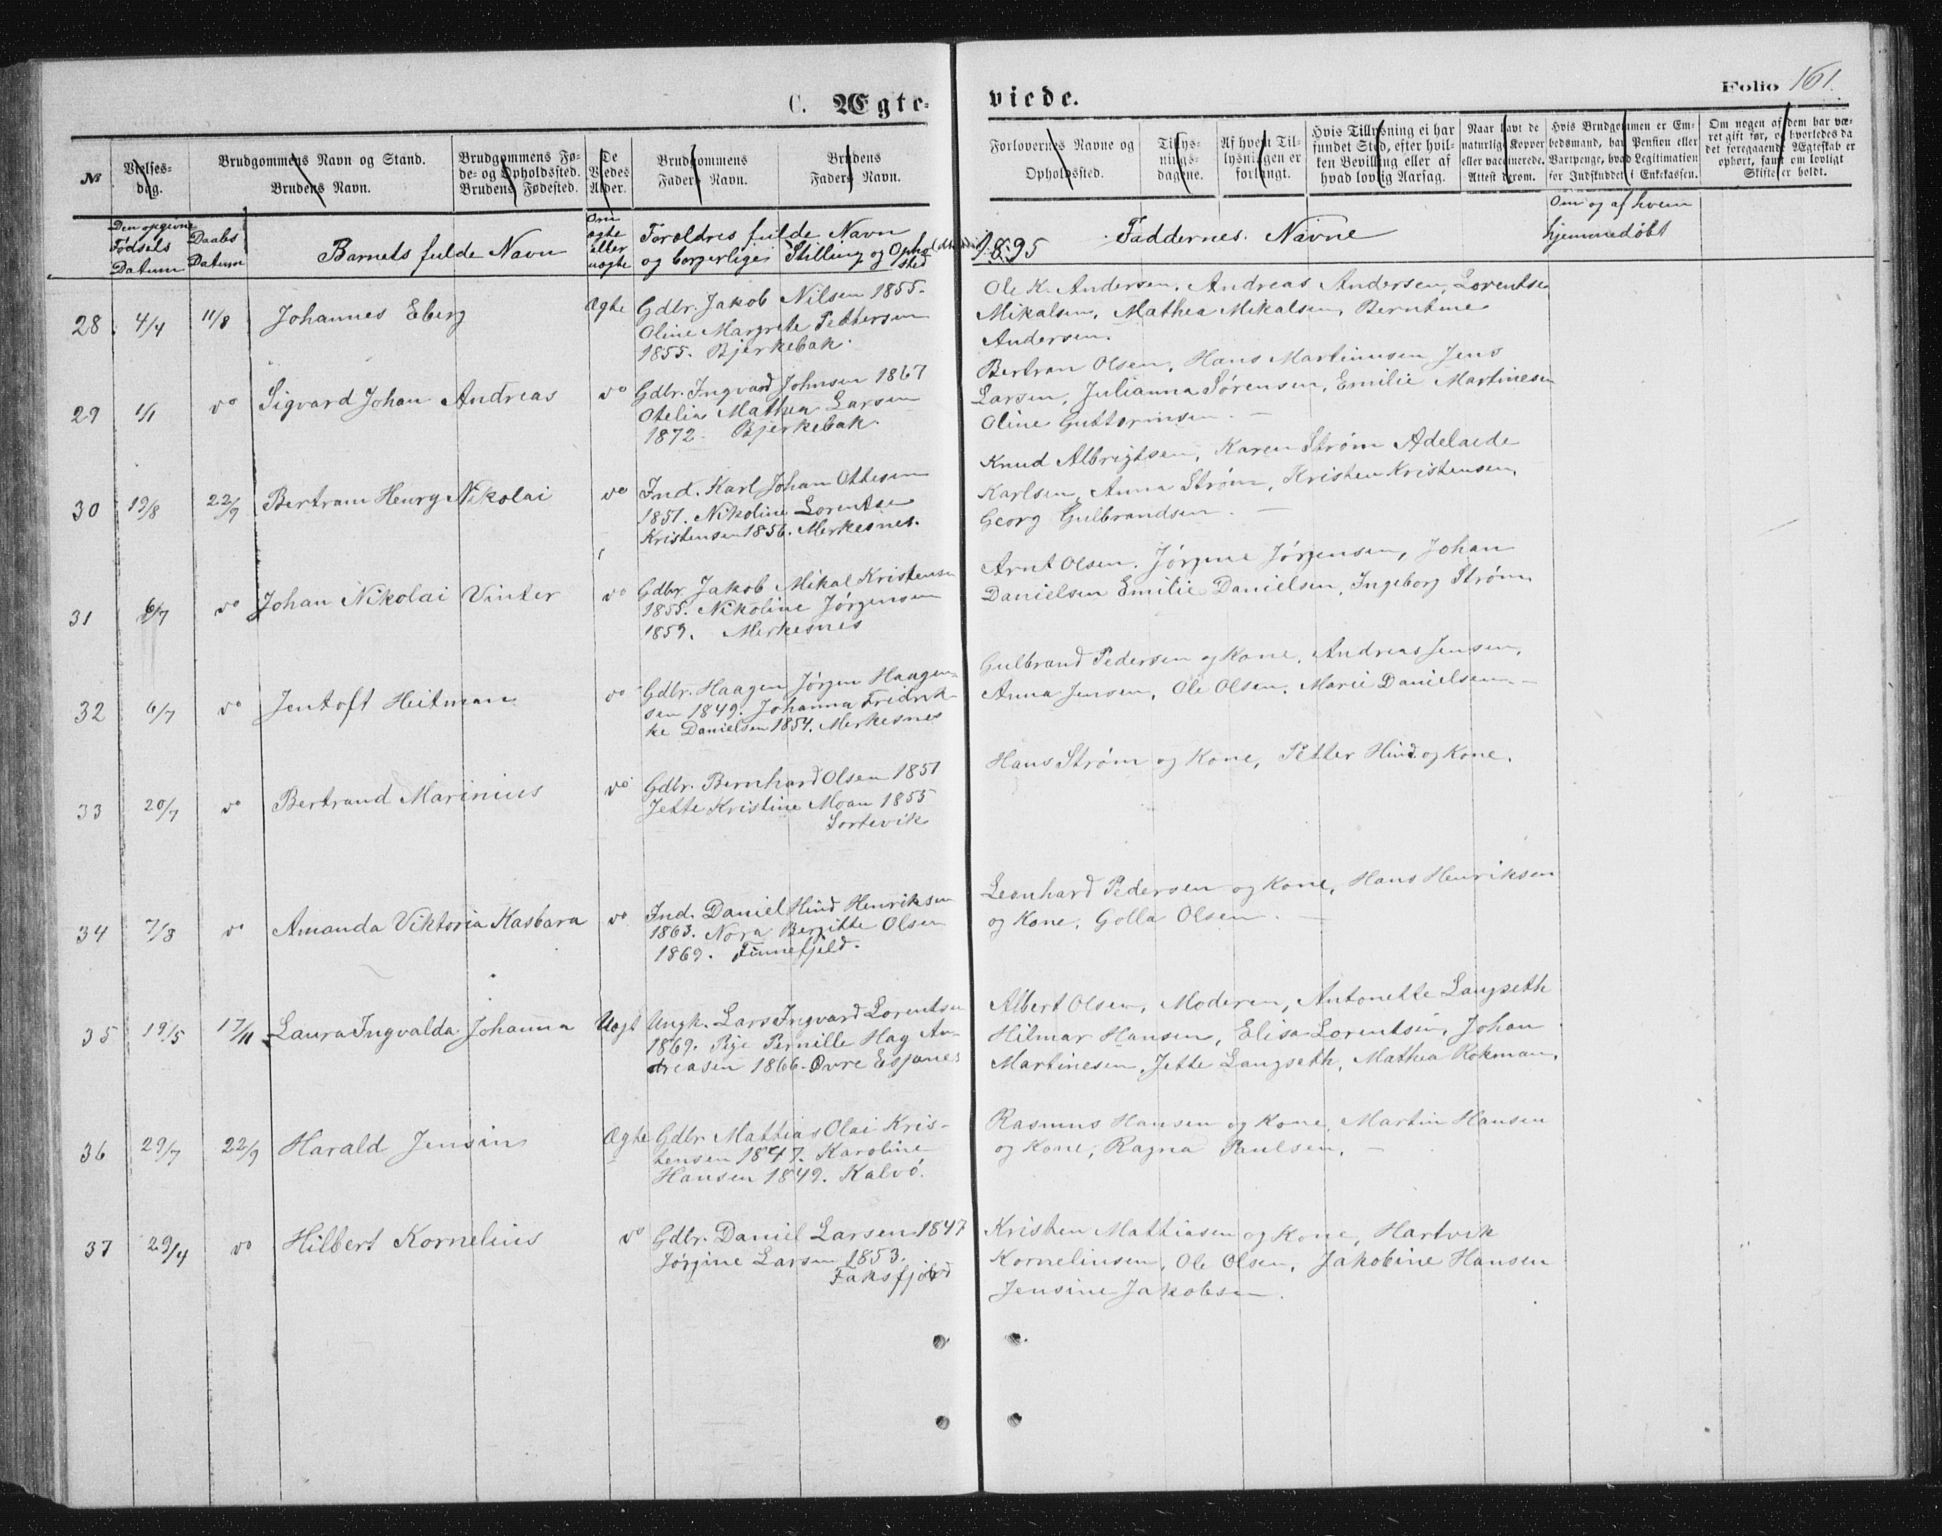 C. Ægte-
viede.
Folio 161.
No
Vielses-
dag.
Brudgommens Navn og Stand.
Brudens Navn.
Brudgommens Fø-
de- og Opholdssted.
Brudens Fødested.
De
Viedes
Alder.
Brudgommens
Faders Navn.
Brudens
Faders Navn.
Forlovernes Navne og
Opholdssted.
Tillys-
nings-
dagene.
Af hvem Til-
lysningen er
forlangt.
Hvis Tillysning ei har
fundet Sted, efter hvil-
ken Bevilling eller af
hvad lovlig Aarsag.
Naar havt de
naturlige Kopper
eller vaccinerede.
Attest derom.
Hvis Brudgommen er Em-
bedsmand, har Pension eller
Vartpenge, hvad Legitimation
for Indskuddet i Enkekassen.
Om nogen af dem har væ-
ret gift før, og hvorledes da
det foregaaende Ægteskab er
ophørt, samt om lovligt
Skifte er holdt.
Den opgivne
Fødsels
Datum
Daabs
Datum
Barnets fulde Navn
Om
ægte
eller
uægte
Foreldres fulde Navn
og borgerlige Stilling og Opholds
sted
1895
Faddernes Navne
Om og af hvem
hjemmedøbt
28 4/4 11/8 Johannes Eberg Ægte Gdbr. Jakob Nilsen 1855.
Oline Margrete Pettersen
1855. Bjerkebak.
Ole K. Andersen, Andreas Andersen, Lorentse
Mikalsen, Mathea Mikalsen, Berntine
Andersen.
29 1/1 vo Sigvard Johan Andreas vo Gdbr. Ingvard Johnsen 1867
Otelia Mathea Larsen
1872. Bjerkebak.
Bertran Olsen, Hans Martinusen Jens
Larsen, Julianna Sørensen, Emilie Martinesen
Oline Guttormsen. —
30 19/8 22/9 Bertram Henry Nikolai vo Ind. Karl Johan Ottesen
1851. Nikoline Lorentse
Kristensen 1856. Merkesnes.
Knud Albrigtsen, Karen Strøm Adelaide
Karlsen, Anna Strøm, Kristen Kristensen,
Georg Gulbrandsen. —
31 6/7 vo Johan Nikolai Vinter vo Gdbr. Jakob Mikal Kristensen
1855. Nikoline Jørgensen
1859. Merkesnes
Arnt Olsen. Jørgine Jørgensen, Johan
Danielsen Emilie Danielsen, Ingeborg Strøm
32 6/7 vo Jentoft Heitman vo Gdbr. Haagen Jørgen Haagen-
sen 1849. Johanna Fridrik-
ke Danielsen 1854. Merkesnes
Gulbrand Pedersen og Kone, Andreas Jensen,
Anna Jensen, Ole Olsen, Marie Danielsen —
33 20/7 vo Bertrand Marinius vo Gdbr. Bernhard Olsen 1851
Jette Kristine Moan 1855
Sortevik
Hans Strøm og Kone, Petter Hind og Kone.
34 7/8 vo Amanda Viktoria Kasbara vo Ind. Daniel Hind Henriksen
1863. Nora Bergitte Olsen
1869. Finnefjeld.
Leonhard Pedersen og Kone, Hans Henriksen
og Kone, Golla Olsen. —
35 19/5 17/11 Laura Ingvalda Johanna Uægt Ungk. Lars Ingvard Lorentsen
1869. Pige Pernille Hag An-
dreasen 1866. Øvre Esjanes
Albert Olsen, Moderen, Antonette Langseth
Hilmar Hansen, Elisa Lorentsen, Johan
Martinesen, Jette Langseth, Mathea Rokman.
36 29/7 22/9 Harald Jensin Ægte Gdbr. Mattias Olai Kris-
tensen 1847. Karoline
Hansen 1849. Kalvö.
Rasmus Hansen og Kone, Martin Hansen
og Kone, Ragna Paulsen. —
37 29/4 vo Hilbert Kornelius vo Gdbr. Daniel Larsen 1847
Jørgine Larsen 1853.
Faksfjord
Kristen Mattiasen og Kone, Hartvik
Korneliusen, Ole Olsen, Jakobine Hansen
Jensine Jakobsen.